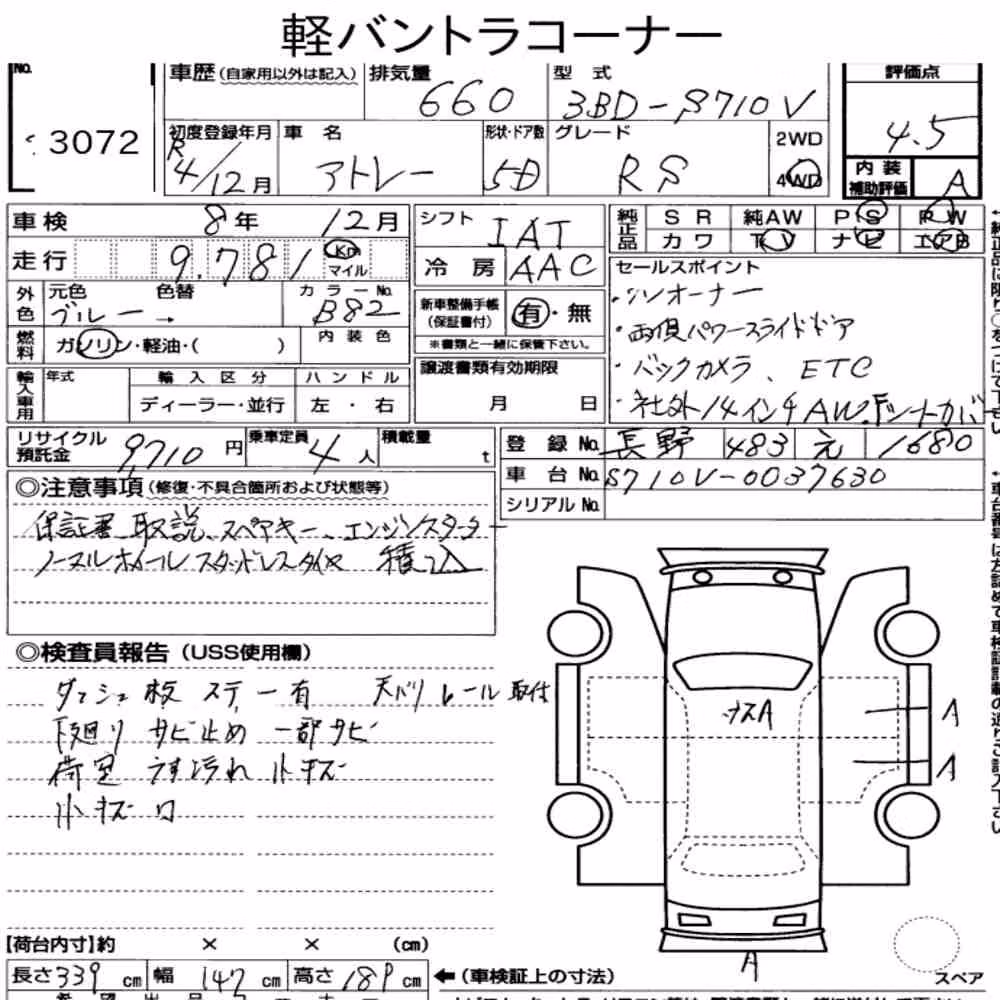 軽バントラコーナー
No. 3072
車歴 (自家用以外は記入) 排気量 660 型式 3BD-S710V 評価点 4.5
初度登録年月 R4/12月 車名 アトレー 形状・ドア数 5D グレード RS 2WD 4WD 内装補助評価 A
車検 8年 12月 シフト IAT 純正品 SR 純AW PS PW
カワ TV ナビ エアB
走行 9.781 Km マイル 冷房 AAC
セールスポイント
・ワンオーナー
外色 元色 ブルー → 色替 カラーNo. B82 新車整備手帳 (保証書付) 有・無
・両側パワースライドドア
燃料 ガソリン・軽油・( ) 内装色 ※書類と一緒に保管下さい。
・バックカメラ、ETC
輸入車用 年式 輸入区分 ハンドル 譲渡書類有効期限
ディーラー・並行 左・右 月 日
・社外14インチAW
リサイクル預託金 9,710円 乗車定員 4人 積載量 t 登録No. 長野 483 え 1680
車台No. S710V-0037630
シリアルNo.
◎注意事項 (修復・不具合箇所および状態等)
保証書、取説、スペアキー、エンジンスターター
ノーマルホイールスタッドレスタイヤ 積込
◎検査員報告 (USS使用欄)
ダッシュ板 ステー有 天バリ レール取付
下廻り サビ止め 一部サビ
荷室 うす汚れ 小キズ
小キズ
A
A
A
A
【荷台内寸】約 × × (cm)
長さ 339 cm 幅 147 cm 高さ 189 cm ←(車検証上の寸法)
スペア